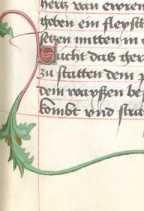 hertz van ewren
geben ein fleysch
setzen mitten in
Sucht das ger
zu statten dem
dem wayssen be
kombt vnd strā